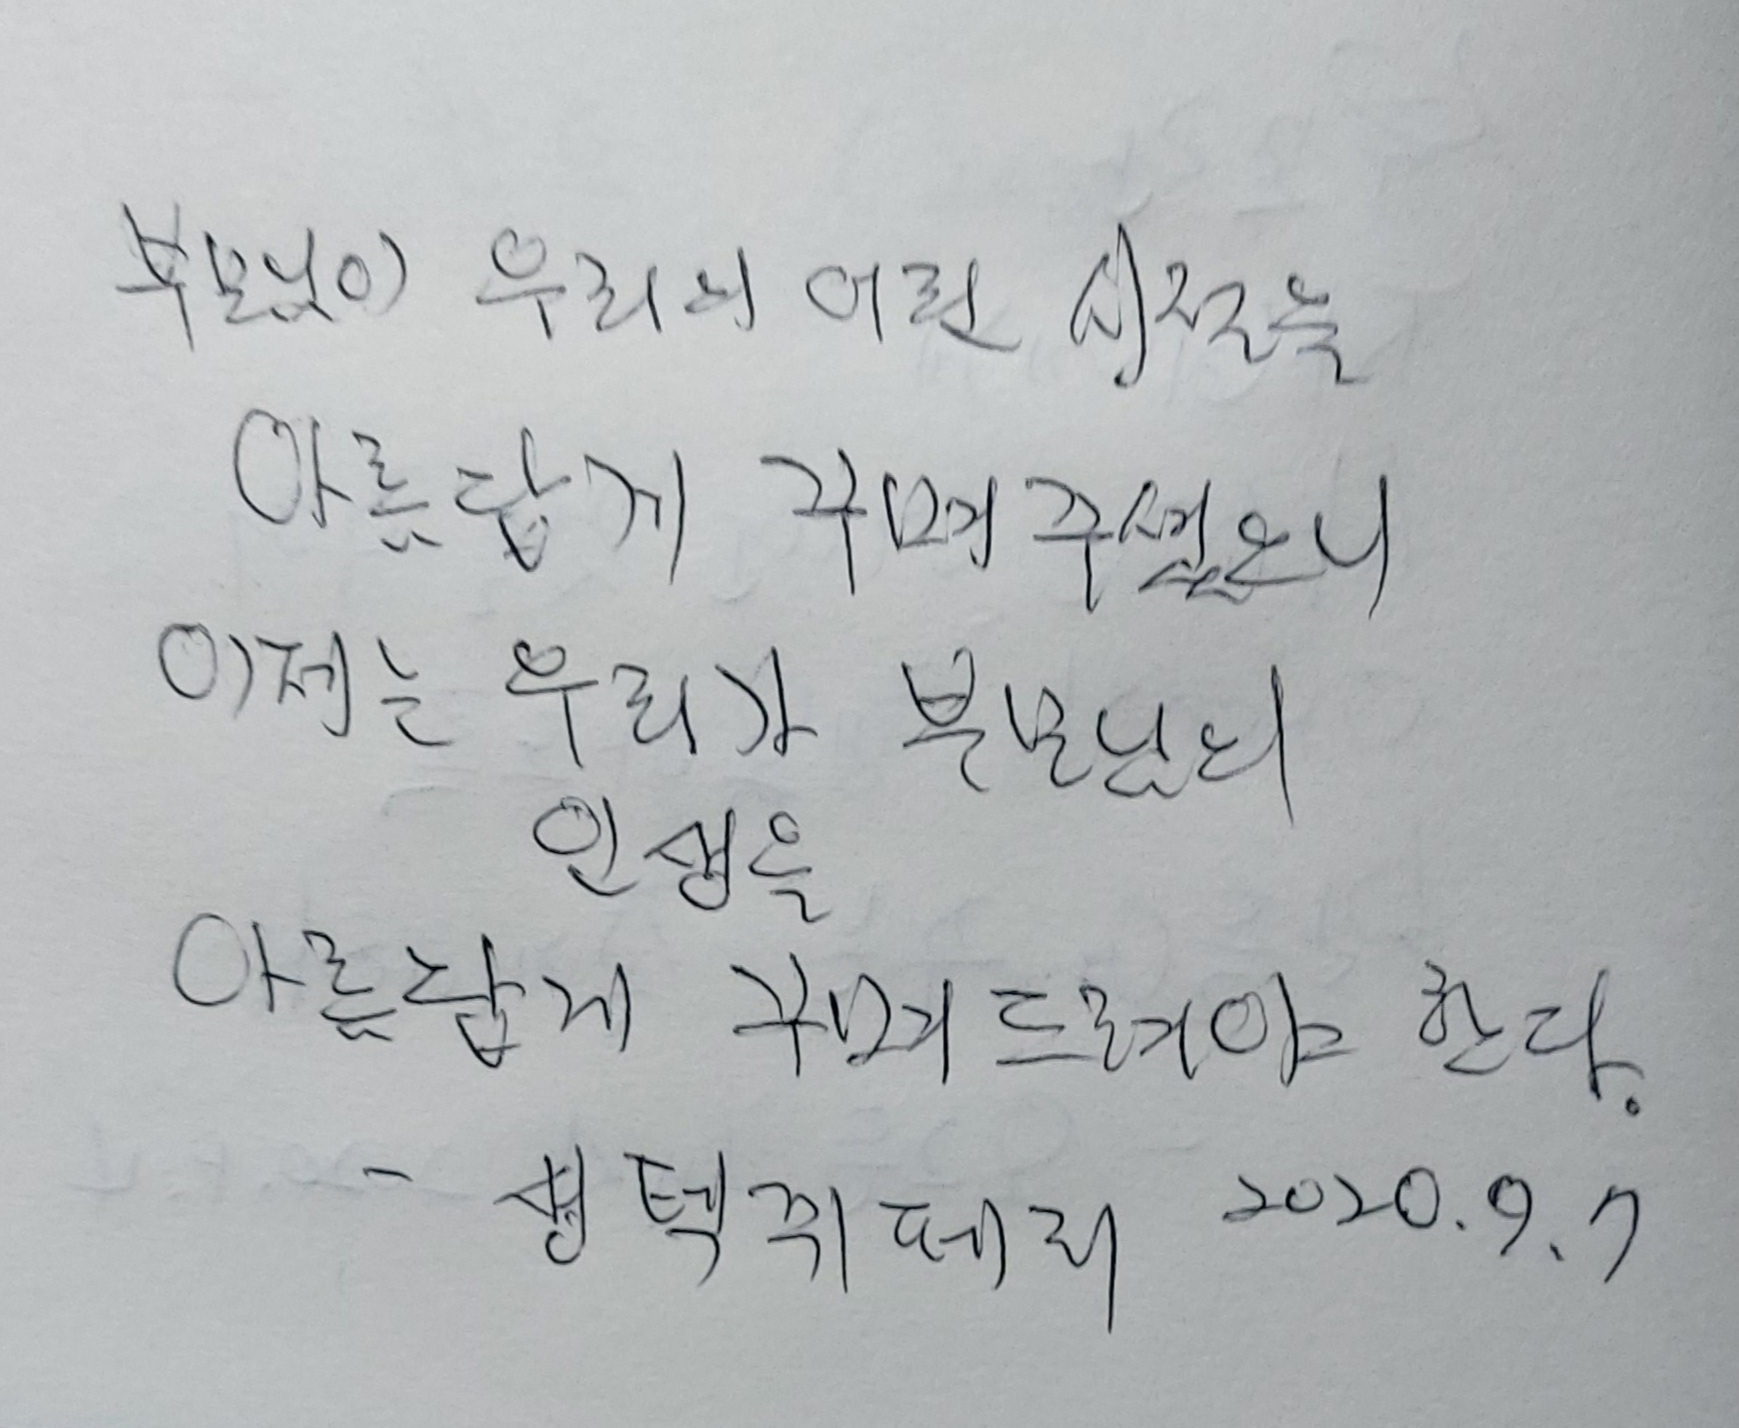 부모님이 우리의 어린 시절을
아름답게 꾸며주셨으니
이제는 우리가 부모님의
인생을
아름답게 꾸며드려야 한다.
- 생텍쥐페리 2020.9.7